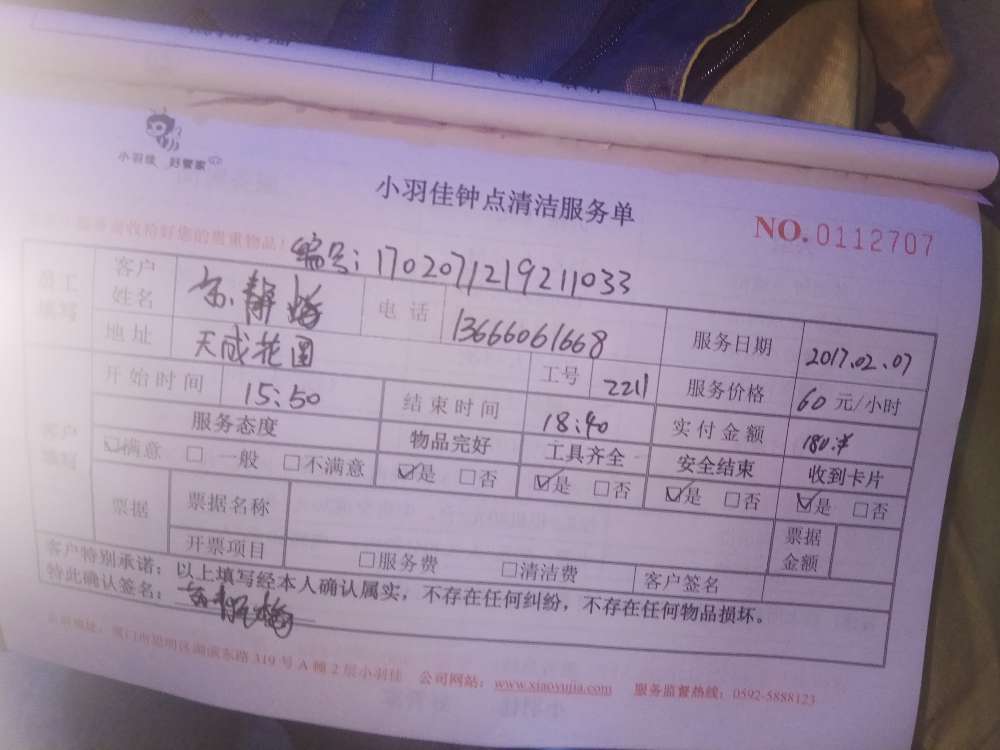 小羽佳 好管家
小羽佳钟点清洁服务单
NO.0112707
收拾好您的贵重物品!
编号:1702071219211033
员工填写 客户姓名 静 电话 13666061668 服务日期 2017.02.07
地址 天成花园 工号 2211 服务价格 60元/小时
开始时间 15:50 结束时间 18:40 实付金额 180.
客户填写 服务态度 物品完好 工具齐全 安全结束 收到卡片
☑满意 □一般 □不满意 ☑是 □否 ☑是 □否 ☑是 □否 ☑是 □否
票据 票据名称 票据金额
开票项目 □服务费 □清洁费 客户签名
客户特别承诺:以上填写经本人确认属实,不存在任何纠纷,不存在任何物品损坏。
特此确认签名:
公司地址:厦门市思明区湖滨东路319号A幢2层小羽佳 公司网站:www.xiaoyujia.com 服务监督热线:0592-5888123